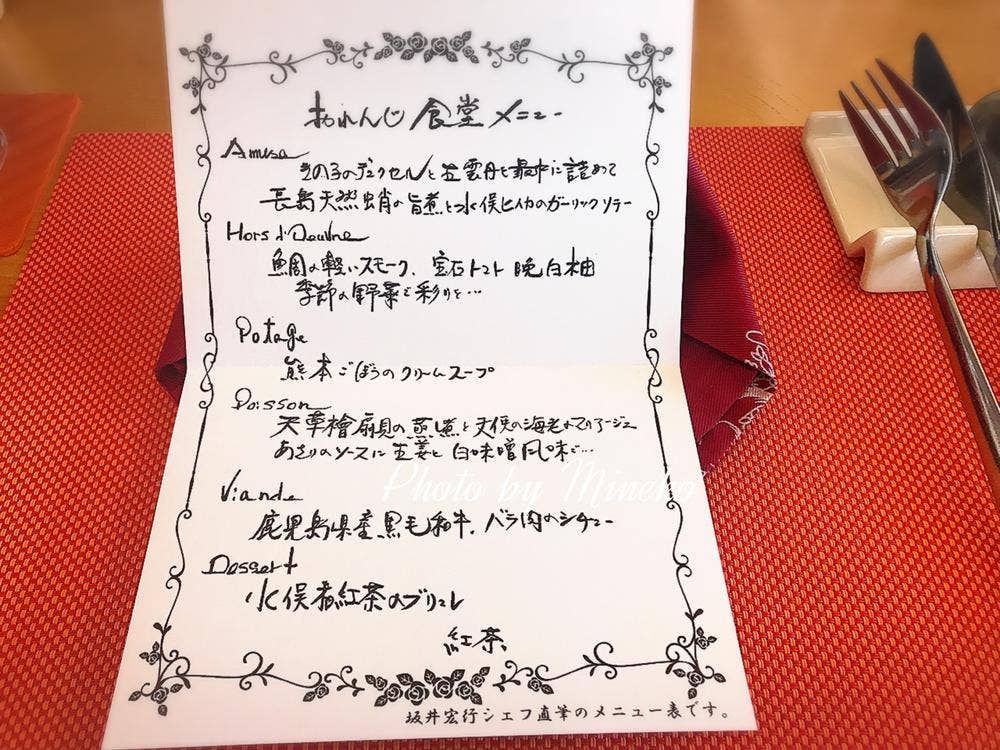 おれんじ食堂メニュー
Amuse
きの子のデュクセルと生雲丹を最中に詰めて
長島天然蛸の旨煮と水俣ヒイカのガーリックソテー
Hors d'Oeuvre
鯛の軽いスモーク、宝石トマト 晩白柚
季節の野菜で彩りを…
Potage
熊本ごぼうのクリームスープ
Poisson
天草檜扇貝の蒸し煮と天使の海老のマリアージュ
あさりのソースに生姜と白味噌風味で…
Photo by Mineko
Viande
鹿児島県産黒毛和牛、バラ肉のシチュー
Dessert
水俣産紅茶のブリュレ
紅茶
坂井宏行シェフ直筆のメニュー表です。